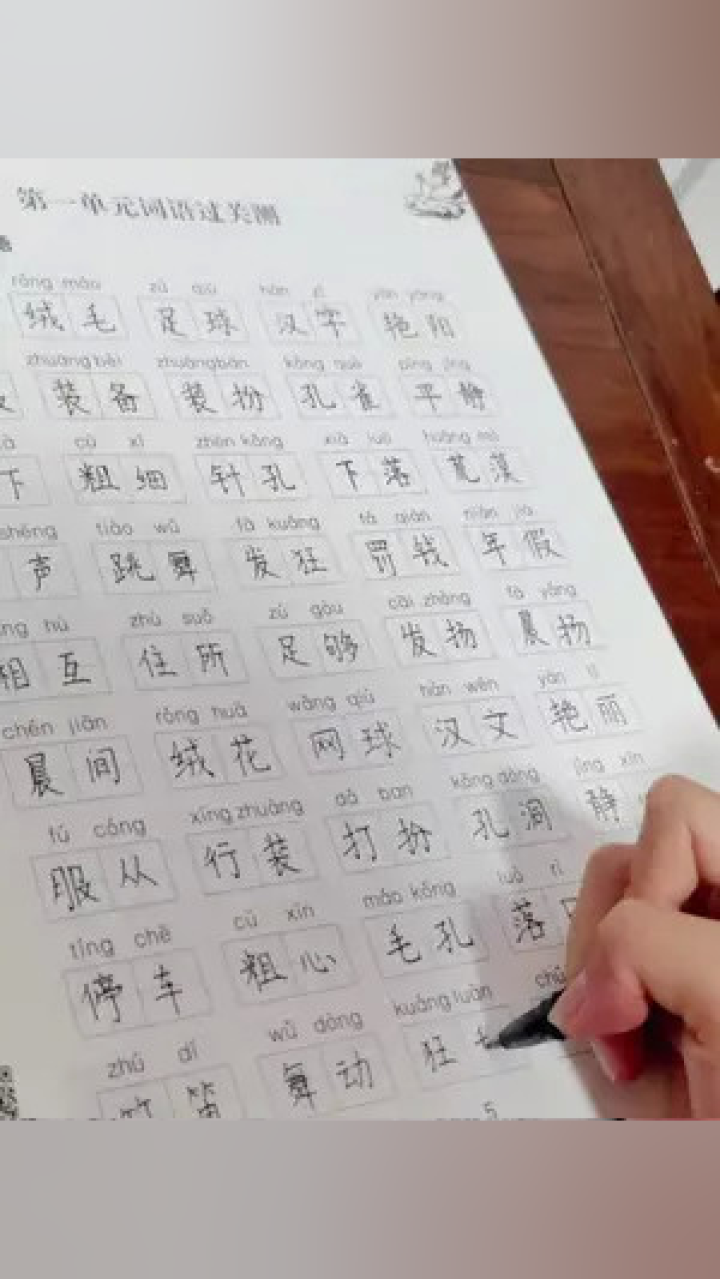 第一单元词语过关测
róng máo zú qiú hàn zì yàn yáng
绒毛 足球 汉字 艳阳
zhuāng bèi zhuāng bàn kǒng què píng jìng
装备 装扮 孔雀 平静
cū xì zhēn kǒng xià luò huāng mò
下 粗细 针孔 下落 荒漠
shēng tiào wǔ fā kuáng fá qián nián jià
声 跳舞 发狂 罚钱 年假
hù zhù suǒ zú gòu
相互 住所 足够 发扬 晨扬
chén jiān róng huā wǎng qiú hàn wén yàn lì
晨间 绒花 网球 汉文 艳丽
fú cóng xíng zhuāng dǎ ban kǒng dòng jìng xīn
服从 行装 打扮 孔洞 静
tíng chē cū xīn máo kǒng luò rì
停车 粗心 毛孔 落
zhú dí wǔ dòng kuáng luàn
竹笛 舞动 狂
5